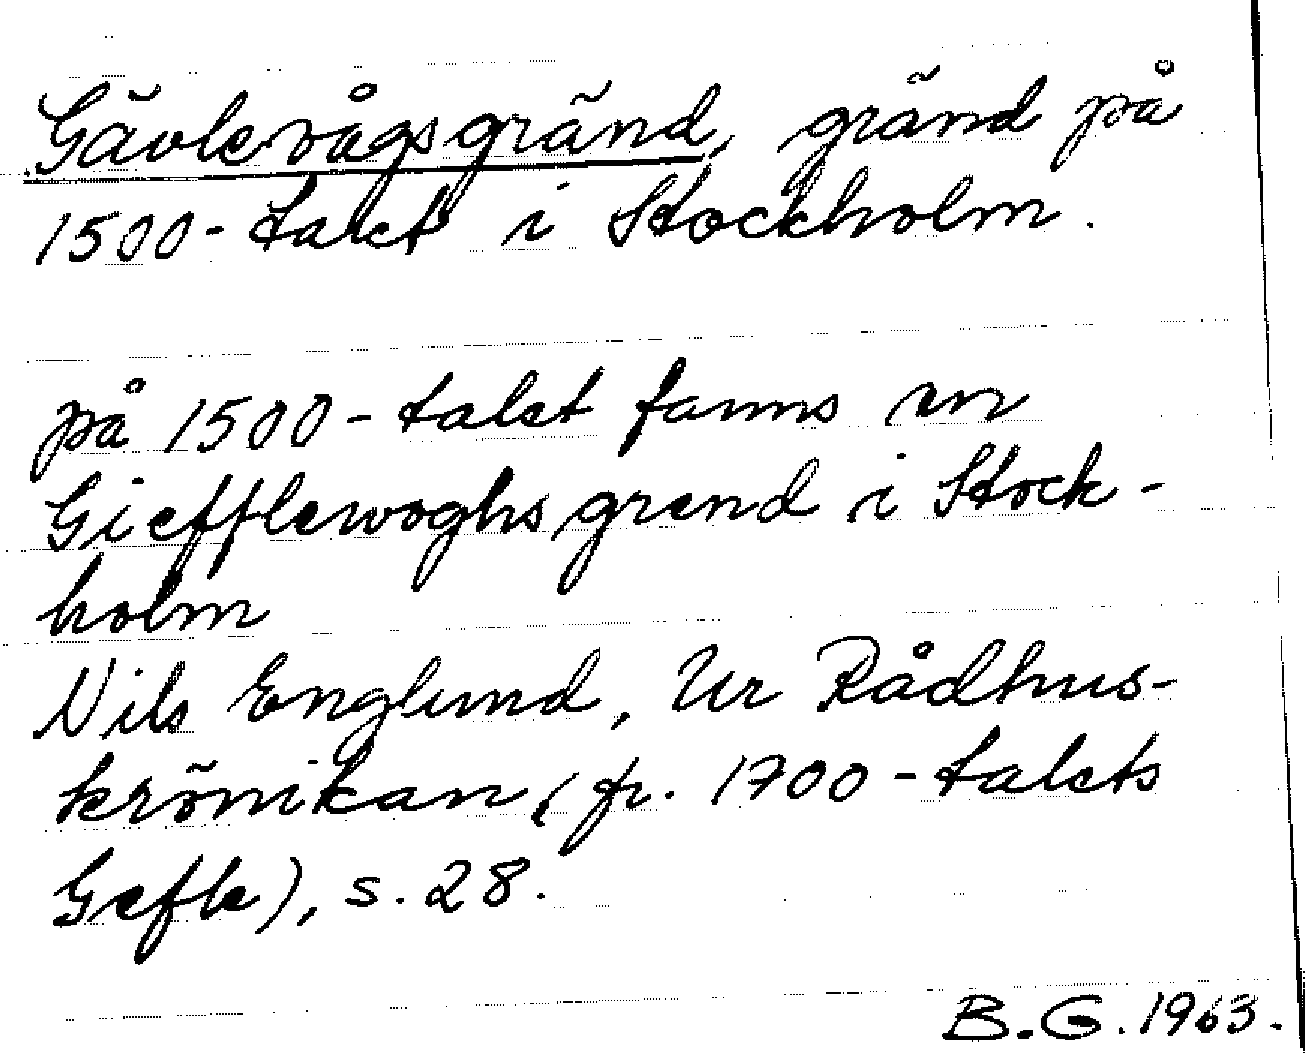 Gävlevågsgränd, gränd på
1500-talet i Stockholm.
på 1500-talet fanns en
Giefflewoghsgrend i Stock-
holm
Nils Englund, Ur Rådhus-
krönikan (fr. 1700-talets
Gefle), s. 28.
B.G. 1963.